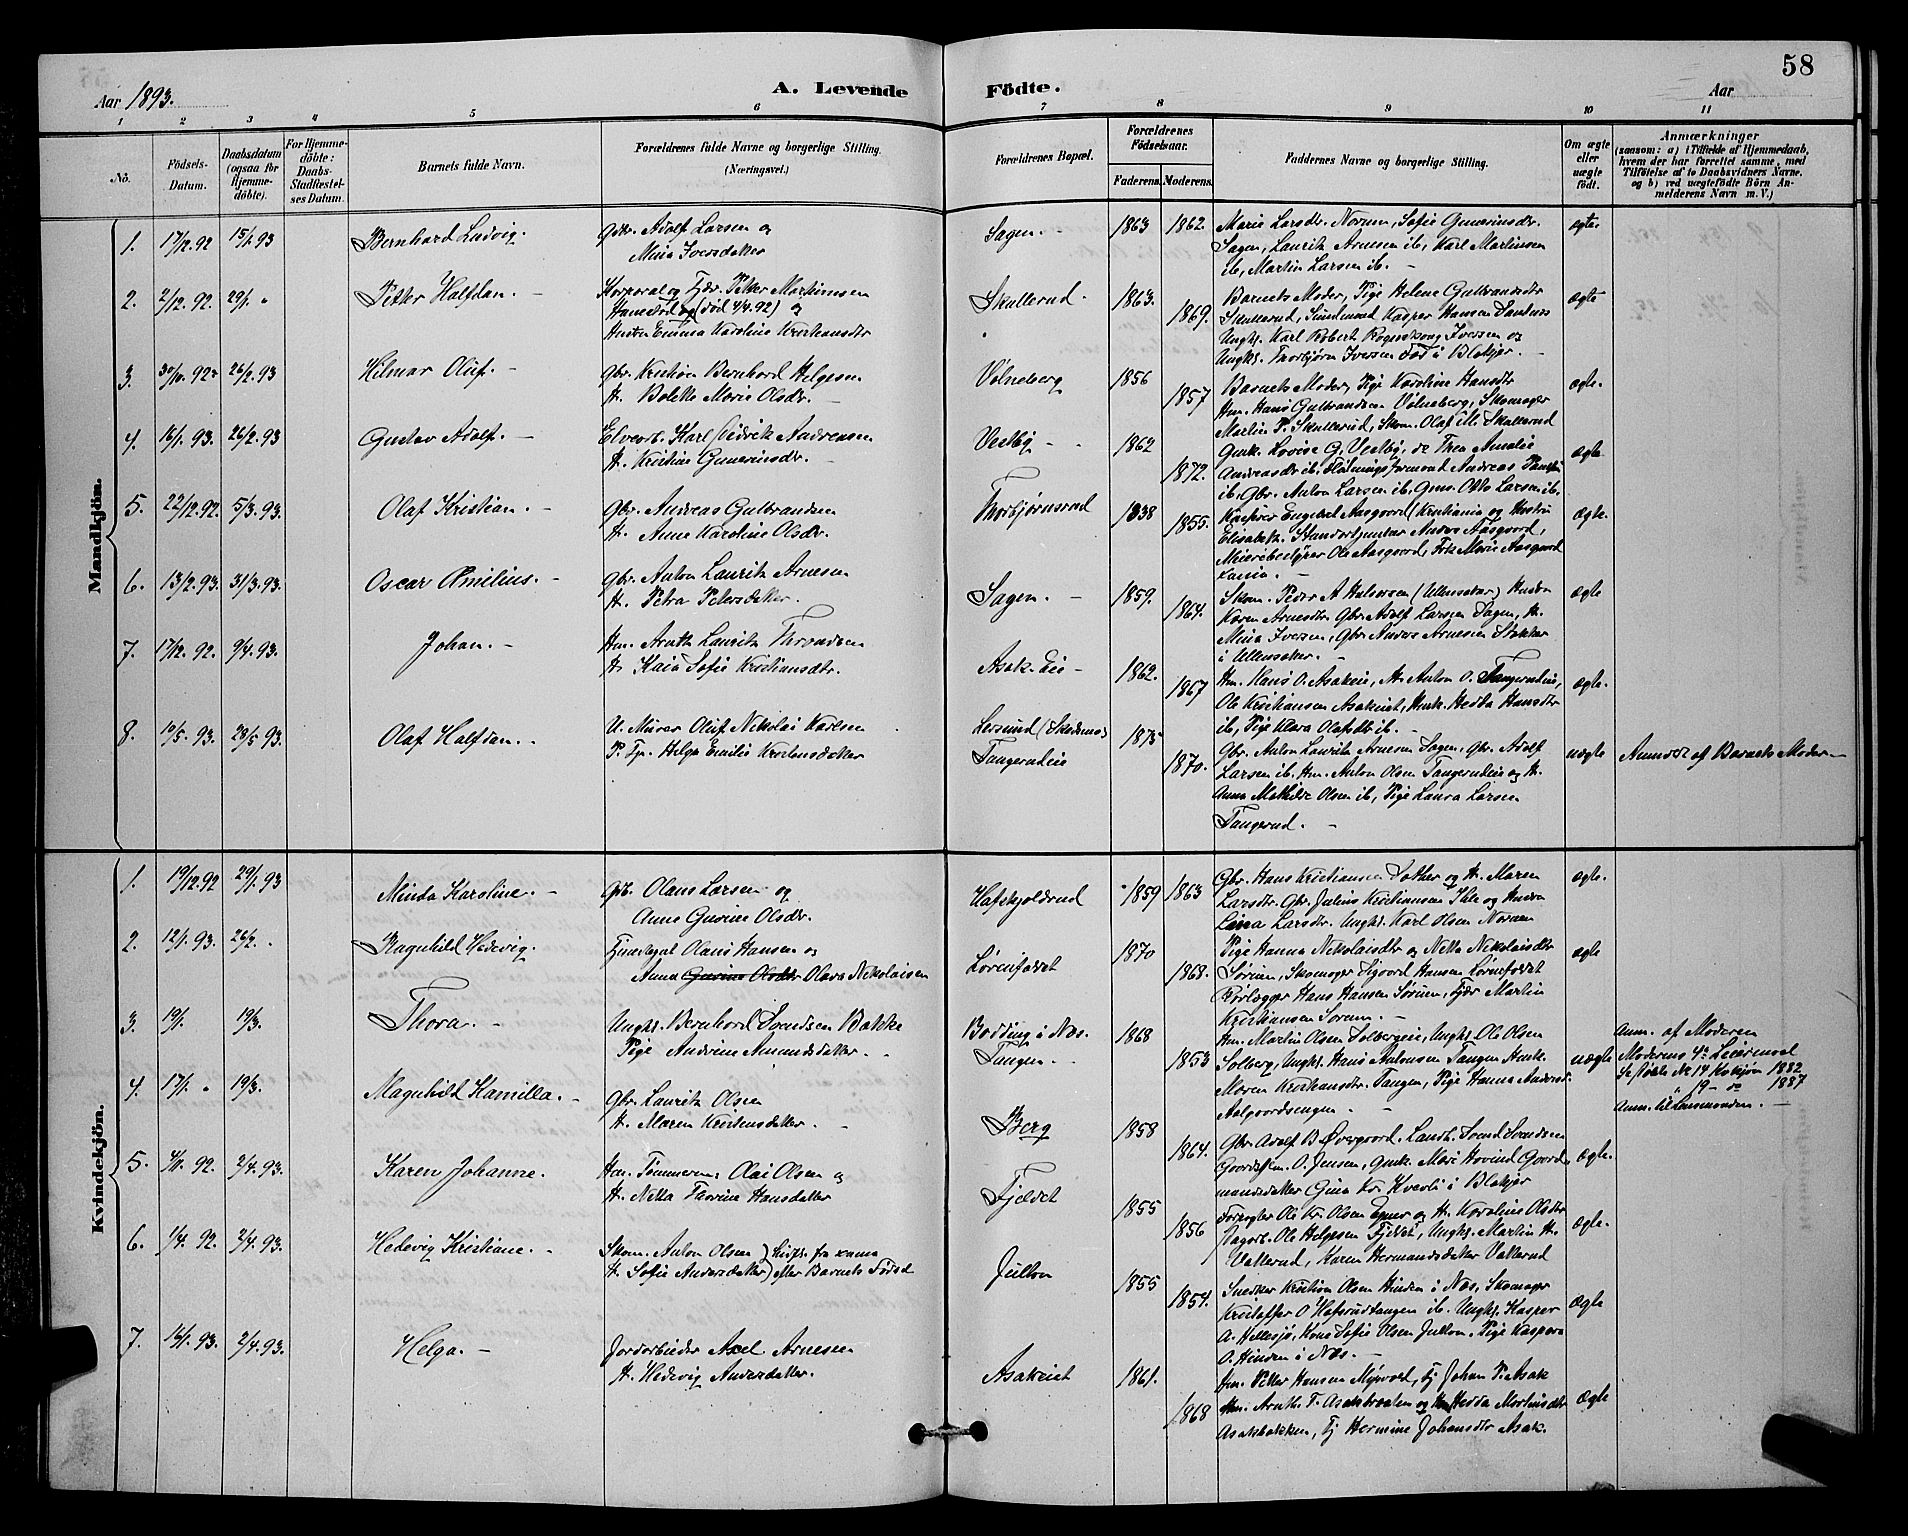 58
Aar 1893.
A. Levende Födte.
Aar
1 2 3 4 5 6 7 8 9 10 11
No.
Födsels-Datum.
Daabsdatum (ogsaa for Hjemme-döbte).
For Hjemme-döbte: Daabs-Stadfæstel-ses Datum.
Barnets fulde Navn.
Forældrenes fulde Navne og borgerlige Stilling. (Næringsvei.)
Forældrenes Bopæl.
Forældrenes Födselsaar.
Faderens. Moderens.
Faddernes Navne og borgerlige Stilling.
Om ægte eller uægte födt.
Anmærkninger
(saasom: a) i Tilfælde af Hjemmedaab, hvem der har forrettet samme, med Tilföielse af to Daabsvidners Navne, og b) ved uægtefödte Börn An-melderens Navn m. V.)
Mandkjön.
1. 17/12.92 15/1.93 Bernhard Ludvig. Gbr. Adolf Larsen og
Mina Iversdatter
Sagen. 1863 1862. Marie Larsdr. Norum, Sofie Guneriusdr.
Sagen, Lauritz Arnesen ib, Karl Martinsen
ib, Martin Larsen ib.
ægte
2. 2/12.92. 29/1. " Petter Halfdan. Petter Martinsen
(død 4/9.92) og
Emma Karoline Kristiansdtr
Skullerud. 1863. 1869. Barnets Moder, Pige Helene Gulbrandsdtr
Skullerud, Kasper Hansen
Ungk. Karl Robert Iversen og
Ungk. Thorbjørn Iversen Fod i Blakjer.
ægte
3. 26/2.93 Hilmar Oluf. Gbr. Kristian Bernhard Helgesen
H. Bolette Marie Olsdr.
Volneberg 1856 1857 Barnets Moder, Pige Karoline Hansdtr
Hm. Hans Gulbrandsen Volneberg, Skomager
Martin P. Skullerud, Skom. Olaf M. Skullerud
ægte.
4. 16/1.93. 26/2.93 Gustav Adolf. Karl Fredrik Andreasen
H. Kristine Guneriusdr.
Vestby 1862 1872. Lovise G. Vestby, do Thea Amalie
Andreasdr ib. Andreas
ib, Gbr. Anton Larsen ib, Gms. Otto Larsen ib.
ægte
5. 22/12.92. 5/3.93. Olaf Kristian. Gbr. Andreas Gulbrandsen
H. Anne Karoline Olsdr.
Thorbjørnsrud 1838 1855. Engebret Aasgaard (Kristiania og Hustru
Elisabeth. Anders Aasgaard,
Meieribestyrer Ole Aasgaard, Frk Marie Aasgaard
ægte.
6. 13/2.93. 31/3.93. Oscar Æmilius. Gbr. Anton Lauritz Arnesen
H. Petra Petersdatter.
Sagen. 1859. 1864. Skom. Peder A Halvorsen (Ullensaker) Hustru
Karen Arnesdtr Gbr. Adolf Larsen Sagen, H.
Mina Iversen, Gbr. Anders Arnesen
i Ullensaker.
ægte
7. 17/12.92. 9/4.93. Johan. Hm. Arnth Lauritz Throndsen
H. Kaia Sofie Kristiansdtr.
Asak-Eie 1862. 1867 Hm. Hans O. Asakeie, H. Anton O. Tangerudeie,
Ole Kristiansen Asakeiet, Hedda Hansdtr
ib, Pige Klara Olafsdtr ib.
ægte.
8. 10/5.93. 28/5.93. Olaf Halfdan. U. Murer Oluf Nikolai Karlsen
P. Tj. Helga Emilie Kristensdatter
Lersund (Skedsmo)
Tangerudeie
1875 1870. Gbr. Anton Lauritz Arnesen Sagen, Gbr. Adolf
Larsen ib. Hm. Anton Olsen Tangerudeie og H.
Anna Mathilde Olsen ib, Pige Laura Larsen
Tangerud.
uægte Anmeldt af Barnets Moder
Kvindekjön.
1. 19/12.92 29/1.93 Minda Karoline. Gbr. Olaus Larsen og
Anne Gurine Olsdr.
Hafskjoldrud 1859 1863 Gbr. Hans Kristiansen og H. Maren
Larsdtr. Gbr. Julius Kristiansen Ihle og Hustru
Lina Larsdtr. Ungk. Karl Olsen Norum
ægte.
2. 12/1.93. 26/2. " Ragnhild Hedevig. Olaus Hansen og
Anna Gurine Olsdtr Olava Nikolaisen
Lørenfaldet 1870 1868. Pige Hanna Nikolaisdtr og Netta Nikolaisdtr
Sørum, Skomager Sigvard Hansen Lørenfaldet
Rørlægger Hans Hansen Sørum, Tjær Martin
Kristiansen Sørum.
ægte
3. 19/1. 19/3. Thora. Ungk. Bernhard Svendsen Bakke
Pige Andrine Amundsdatter.
Bodding i Næs.
Tangen
1868 1853 Hm. Martin Olsen Solbergeie, Ungk. Ole Olsen
Solberg, Ungk. Hans Antonsen Tangen
Maren Kristiansdtr. Tangen, Pige Hanna
Aalgaardsengen.
uægte Anm. af Moderen
Moderens 4de Leiermaal
Se fødte Nr. 14 Kvkjøn 1882
" 19 - do 1887
Anm. til Lensmanden.
4. 17/1. " 19/3. Magnhild Kamilla. Gbr. Lauritz Olsen
H. Maren Kristensdatter.
Berg 1858 1864. Gbr. Adolf B. Øvergaard. Landh. Svend Svendsen
O. Jensen, Marie Hovind Gaard
mandsdatter Gina Kr. Kvevli i Blakjer
ægte.
5. 4/11.92. 2/4.93. Karen Johanne. Hm. Tømmerm. Olai Olsen og
H. Netta Thorine Hansdatter
Fjeldet 1855 1856 Forpagter Ole Kr. Olsen og H. Karoline Olsdtr
Ole Helgesen Fjeldet, Ungk. Martin H.
Vallerud, Karen Hermansdatter Vallerud
ægte.
6. 1/4.92. 2/4.93. Hedevig Kristiane. Skom. Anton Olsen
H. Sofie Andersdatter) efter Barnets Fødsel
Julton 1855 1854. Snedker Kristian Olsen Hinden i Næs, Skomager
Kristoffer O Hafsrudtangen ib. Ungk. Kasper
A. Hellesjø, Kone Sofie Olsen Julton. Pige Kaspara
O. Hinden i Næs.
ægte
7. 16/1.93. 2/4.93. Helga. Jordarbeider Axel Arnesen
H. Hedevig Andersdatter.
Asakeiet 1861. 1868 Hm. Petter Hansen Myrvold, Tj Johan P. Asak
Hm. Arnth T. Asaksbraaten og Hedda Martinsdtr
Asaksbakken, Tj Hermine Johansdtr Asak.
ægte